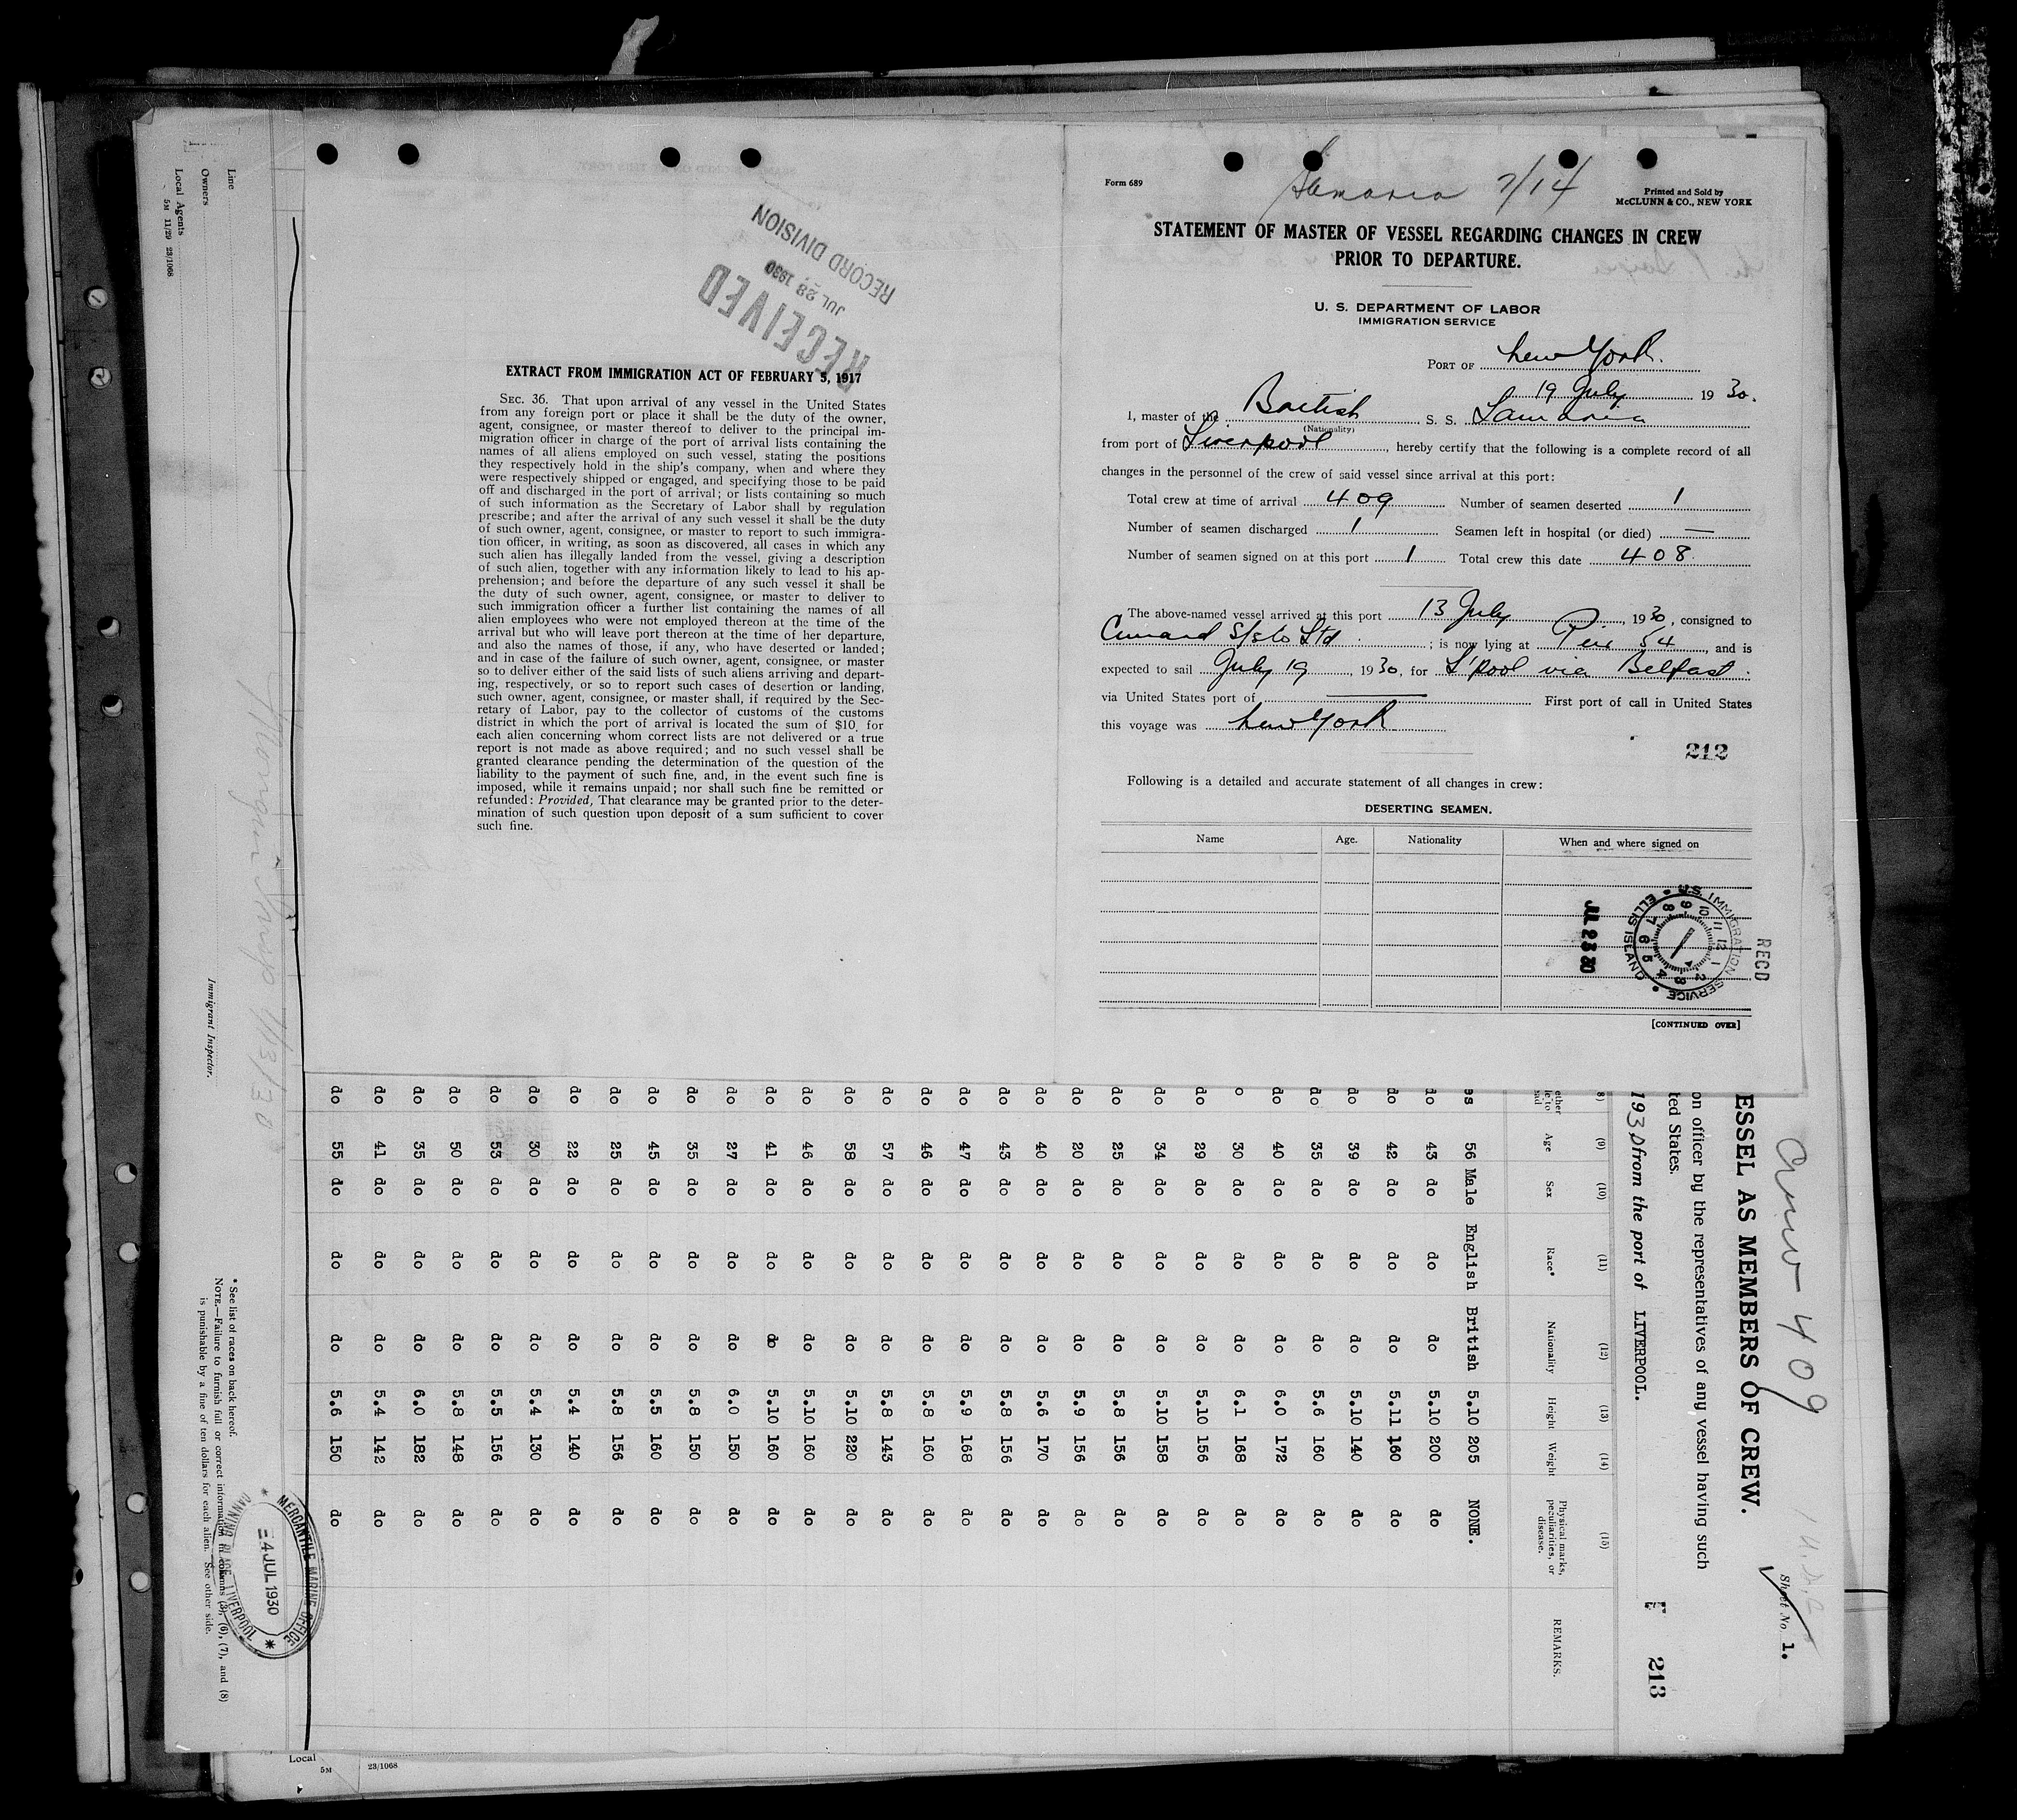 Form 689
Samaria 7/14
Printed and Sold by
McCLUNN & CO., NEW YORK
STATEMENT OF MASTER OF VESSEL REGARDING CHANGES IN CREW
PRIOR TO DEPARTURE.
U. S. DEPARTMENT OF LABOR
IMMIGRATION SERVICE
PORT OF New York.
19 July 1930.
I, master of the British S. S. Samaria
(Nationality)
from port of Liverpool, hereby certify that the following is a complete record of all
changes in the personnel of the crew of said vessel since arrival at this port:
Total crew at time of arrival 409 Number of seamen deserted 1
Number of seamen discharged 1 Seamen left in hospital (or died) —
Number of seamen signed on at this port 1 Total crew this date 408
The above-named vessel arrived at this port 13 July, 1930, consigned to
Cunard S/s Co Ltd ; is now lying at Pier 54, and is
expected to sail July 19, 1930, for L'pool via Belfast.
via United States port of — First port of call in United States
this voyage was New York
212
Following is a detailed and accurate statement of all changes in crew:
DESERTING SEAMEN.
Name Age. Nationality When and where signed on
JUL 23 30
RECD
U.S. IMMIGRATION SERVICE
ELLIS ISLAND
[CONTINUED OVER]
RECEIVED
JUL 28 1930
RECORD DIVISION
EXTRACT FROM IMMIGRATION ACT OF FEBRUARY 5, 1917
SEC. 36. That upon arrival of any vessel in the United States
from any foreign port or place it shall be the duty of the owner,
agent, consignee, or master thereof to deliver to the principal im-
migration officer in charge of the port of arrival lists containing the
names of all aliens employed on such vessel, stating the positions
they respectively hold in the ship's company, when and where they
were respectively shipped or engaged, and specifying those to be paid
off and discharged in the port of arrival; or lists containing so much
of such information as the Secretary of Labor shall by regulation
prescribe; and after the arrival of any such vessel it shall be the duty
of such owner, agent, consignee, or master to report to such immigra-
tion officer, in writing, as soon as discovered, all cases in which any
such alien has illegally landed from the vessel, giving a description
of such alien, together with any information likely to lead to his ap-
prehension; and before the departure of any such vessel it shall be
the duty of such owner, agent, consignee, or master to deliver to
such immigration officer a further list containing the names of all
alien employees who were not employed thereon at the time of the
arrival but who will leave port thereon at the time of her departure,
and also the names of those, if any, who have deserted or landed;
and in case of the failure of such owner, agent, consignee, or master
so to deliver either of the said lists of such aliens arriving and depart-
ing, respectively, or so to report such cases of desertion or landing,
such owner, agent, consignee, or master shall, if required by the Sec-
retary of Labor, pay to the collector of customs of the customs
district in which the port of arrival is located the sum of $10 for
each alien concerning whom correct lists are not delivered or a true
report is not made as above required; and no such vessel shall be
granted clearance pending the determination of the question of the
liability to the payment of such fine, and, in the event such fine is
imposed, while it remains unpaid; nor shall such fine be remitted or
refunded: Provided, That clearance may be granted prior to the deter-
mination of such question upon deposit of a sum sufficient to cover
such fine.
409
Sheet No. 1.
ESSEL AS MEMBERS OF CREW.
on officer by the representatives of any vessel having such
ted States.
1930 from the port of LIVERPOOL.
213
(8) (9) (10) (11) (12) (13) (14) (15)
Age Sex Race* Nationality Height Weight Physical marks, peculiarities, or disease. REMARKS.
es 56 Male English British 5.10 205 NONE.
do 43 do do do 5.10 200 do
do 42 do do do 5.11 160 do
do 39 do do do 5.10 140 do
do 35 do do do 5.6 160 do
do 40 do do do 6.0 172 do
o 30 do do do 6.1 168 do
do 29 do do do 5.10 156 do
do 34 do do do 5.10 158 do
do 25 do do do 5.8 156 do
do 20 do do do 5.9 156 do
do 40 do do do 5.6 170 do
do 43 do do do 5.8 156 do
do 47 do do do 5.9 168 do
do 46 do do do 5.8 160 do
do 57 do do do 5.8 143 do
do 58 do do do 5.10 220 do
do 46 do do do 5.10 160 do
do 41 do do do 5.10 160 do
do 27 do do do 6.0 150 do
do 35 do do do 5.8 150 do
do 45 do do do 5.5 160 do
do 25 do do do 5.8 156 do
do 22 do do do 5.4 140 do
do 30 do do do 5.4 130 do
do 53 do do do 5.5 156 do
do 50 do do do 5.8 148 do
do 35 do do do 6.0 182 do
do 41 do do do 5.4 142 do
do 55 do do do 5.6 150 do
Line
Owners
Local Agents
5M 11/29 23/1068
7/13/30
Immigrant Inspector.
* See list of races on back hereof.
NOTE.—Failure to furnish full or correct information in columns (3), (6), (7), and (8)
is punishable by a fine of ten dollars for each alien. See other side.
MERCANTILE MARINE OFFICE
4 JUL 1930
CANNING PLACE, LIVERPOOL
Local
5M 23/1068